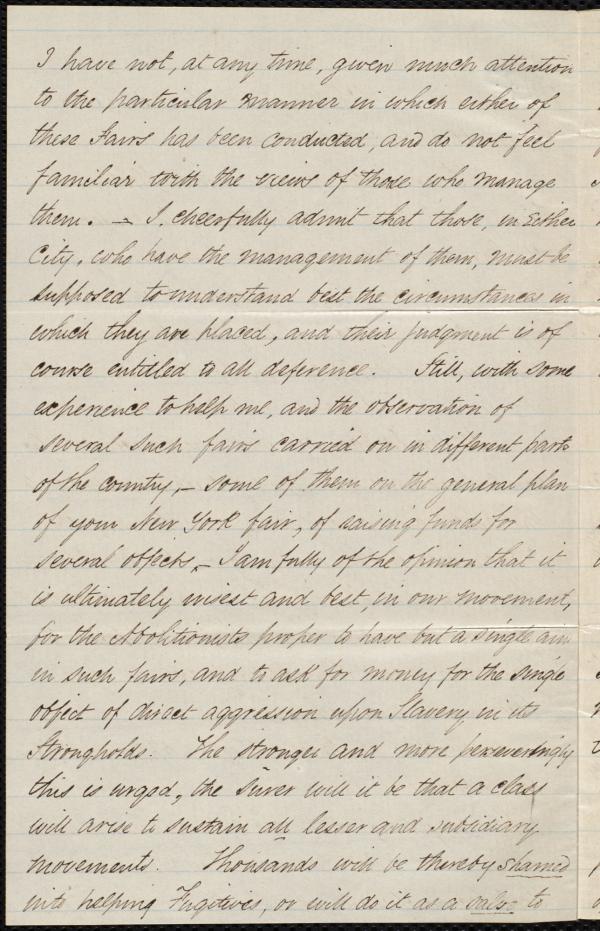 I have not, at any time, given much attention
to the particular manner in which either of
these Fairs has been conducted, and do not feel
familiar with the views of those who manage
them. — I cheerfully admit that those, in Either
City, who have the management of them, must be
supposed to understand best the circumstances in
which they are placed, and their judgment is of
course entitled to all deference. Still, with some
experience to help me, and the observation of
several such fairs carried on in different parts
of the country, — some of them on the general plan
of your New York fair, of raising funds for
several objects, — I am fully of the opinion that it
is ultimately wisest and best, in our movement,
for the Abolitionists proper to have but a single aim
in such fairs, and to ask for money for the single
object of direct aggression upon Slavery in its
Strongholds. The stronger and more perseveringly
this is urged, the surer will it be that a class
will arise to sustain all lesser and subsidiary
movements. Thousands will be thereby shamed
into helping Fugitives, or will do it as a salve to